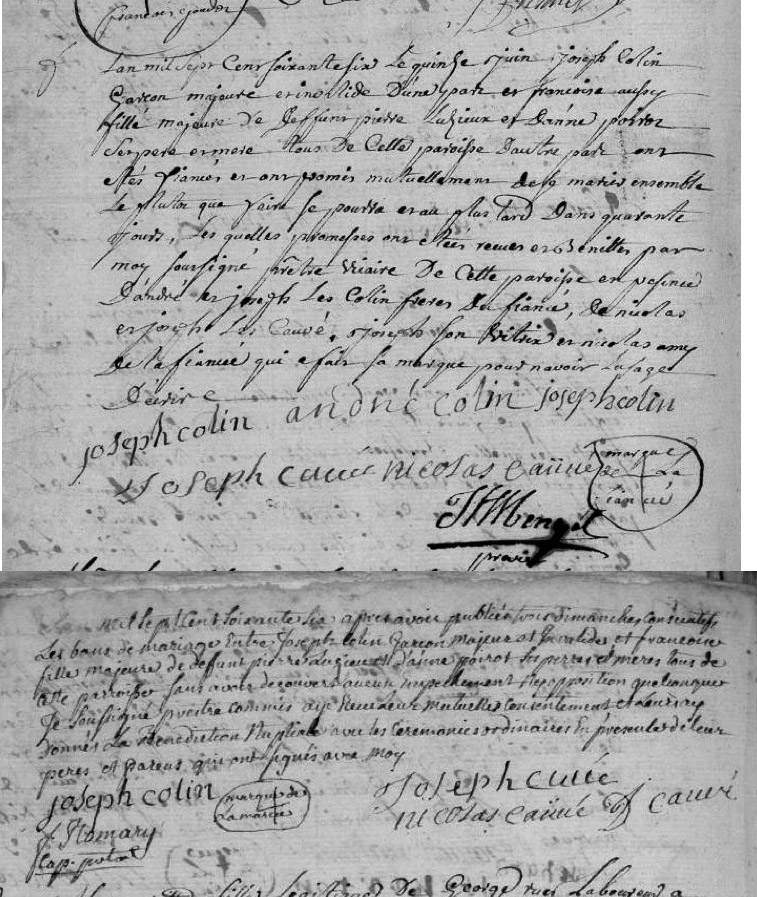 francoise
Lan mil sept Cent soixante six Le quinze juin joseph Colin
Garcon majeure et invalide D'une part et francoise aussy
fille majeure de deffunt pierre Luzieux et D'anne poirot
ses pere et mere tous De Cette paroisse D'autre part ont
étés fiancés et ont promis mutuellement de marier ensemble
Le plutot que faire se pourra et au plus tard Dans quarante
jours, Les quelles promesses ont étées recues et benittes par
moy soussigné prêtre viaire De Cette paroisse en presence
D'andré et joseph Les Colin freres Du fiancé, De nicolas
et joseph Les Cauvé, joseph son et nicolas amy
De la fiancee qui a fait sa marque pour navoir Lusage
Décrire
joseph colin andré colin joseph colin
joseph cauvé nicolas cauvé marque
De La
fiancé
mil sept Cent soixante six apres avoir publiés trois dimanches Consecutifs
Les bans de mariage Entre Joseph Colin Garcon majeur et Invalides et francoise
fille majeure de deffunt pierre Luzieux et d'anne poirot ses perres et meres tous de
cette parroisse sans avoir decouvert aucun empechement ny opposition quelconque
Je soussigné prestre commis ay receu Leur mutuelle Consentement et Leur ay
donnés La Bénédiction Nuptiale avec les Ceremonies ordinaires En presence de leur
peres et parens qui ont signés avec moy
joseph colin marque de
La mariée
Joseph cuvée
nicolas cauvé cauvé
fille Legitime De George Laboureur a